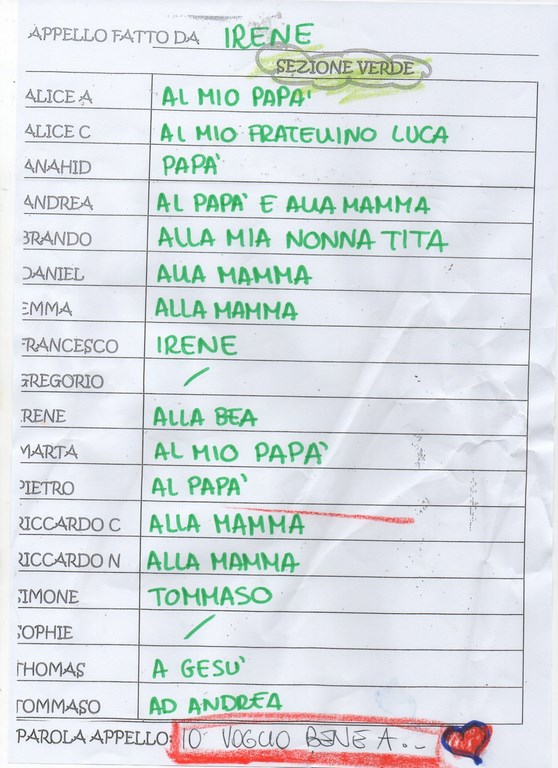 APPELLO FATTO DA IRENE
SEZIONE VERDE
ALICE A AL MIO PAPA'
ALICE C AL MIO FRATELLINO LUCA
ANAHID PAPA'
ANDREA AL PAPA' E ALLA MAMMA
BRANDO ALLA MIA NONNA TITA
DANIEL ALLA MAMMA
EMMA ALLA MAMMA
FRANCESCO IRENE
GREGORIO /
IRENE ALLA BEA
MARTA AL MIO PAPA'
PIETRO AL PAPA'
RICCARDO C ALLA MAMMA
RICCARDO N ALLA MAMMA
SIMONE TOMMASO
SOPHIE /
THOMAS A GESU'
TOMMASO AD ANDREA
PAROLA APPELLO: IO VOGLIO BENE A...